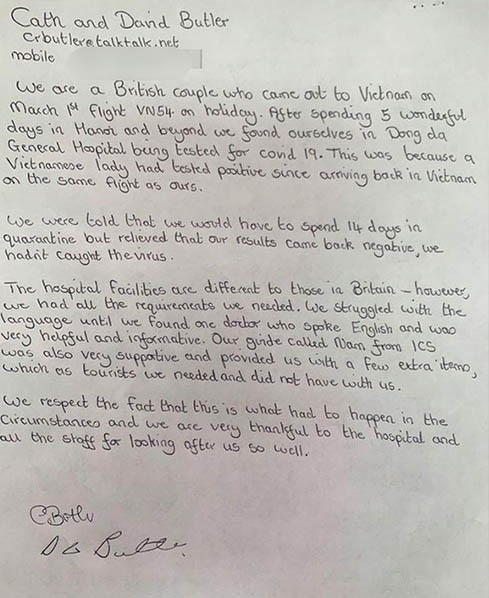 Cath and David Butler
crbutler@talktalk.net
mobile
We are a British couple who came out to Vietnam on
March 1st flight VN54 on holiday. After spending 5 wonderful
days in Hanoi and beyond we found ourselves in Dong da
General Hospital being tested for covid 19. This was because a
Vietnamese lady had tested positive since arriving back in Vietnam
on the same flight as ours.
We were told that we would have to spend 14 days in
quarantine but relieved that our results came back negative, we
hadn't caught the virus.
The hospital facilities are different to those in Britain – however,
we had all the requirements we needed. We struggled with the
language until we found one doctor who spoke English and was
very helpful and informative. Our guide called Nam from ICS
was also very supportive and provided us with a few extra items,
which as tourists we needed and did not have with us.
We respect the fact that this is what had to happen in the
circumstances and we are very thankful to the hospital and
all the staff for looking after us so well.